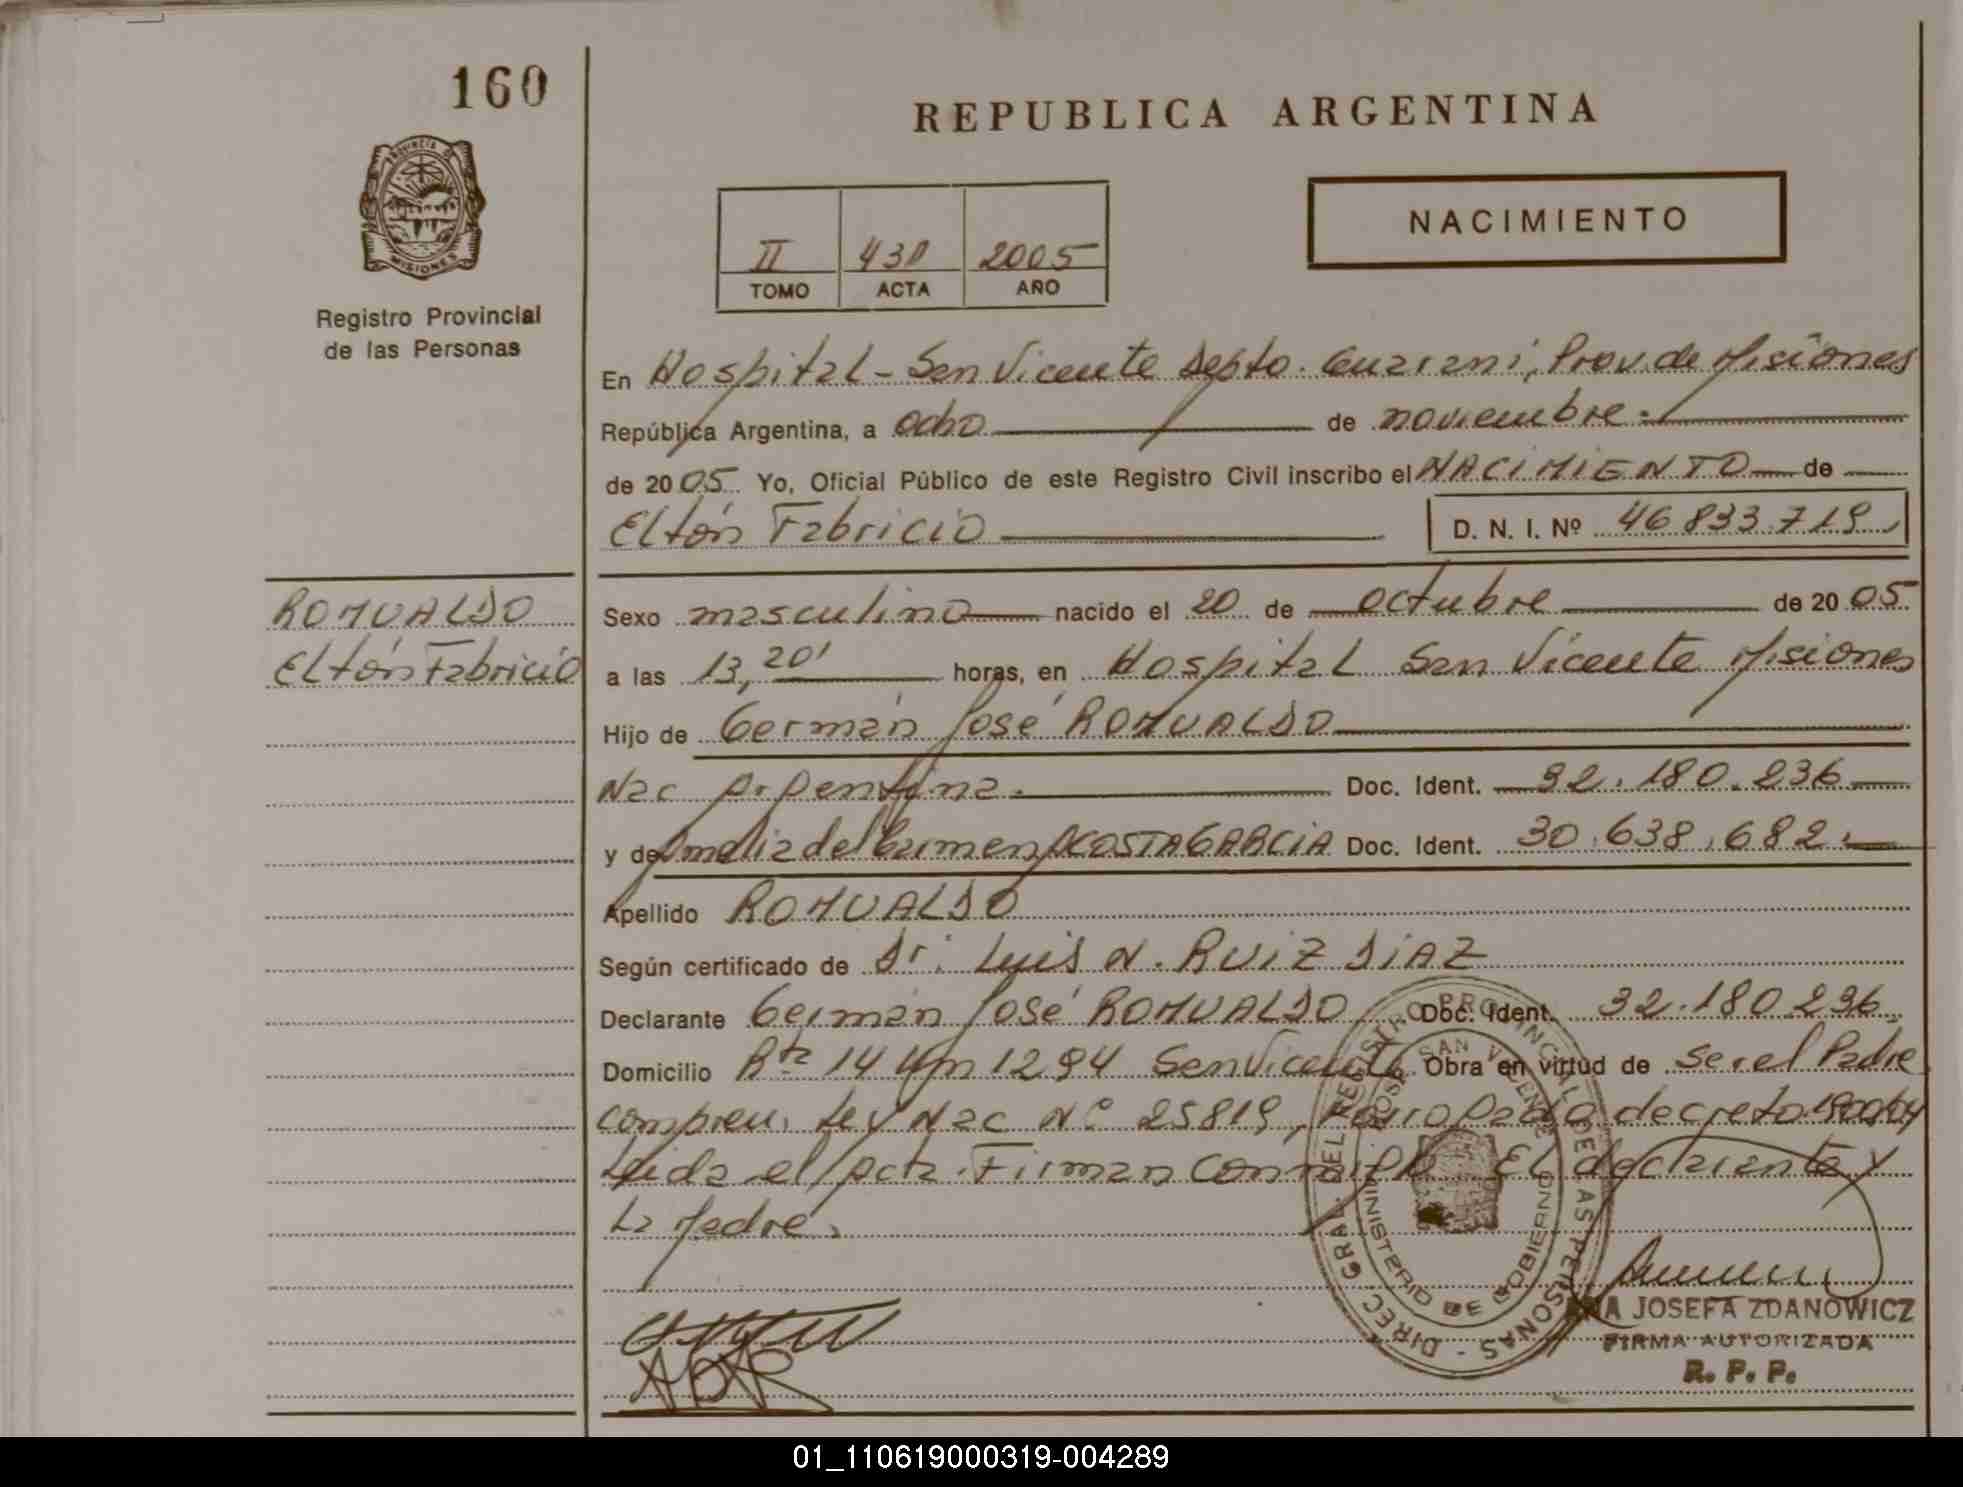 160
REPUBLICA ARGENTINA
PROVINCIA DE
MISIONES
Registro Provincial
de las Personas
NACIMIENTO
II 430 2005
TOMO ACTA AÑO
En Hospital - San Vicente Depto. Guarani, Prov. de Misiones
República Argentina, a ocho de noviembre.
de 2005 Yo, Oficial Público de este Registro Civil inscribo el NACIMIENTO de
Eltón Fabricio D. N. I. Nº 46.833.719
ROMUALDO
Eltón Fabricio
Sexo masculino nacido el 20 de octubre de 2005
a las 13,20' horas, en Hospital San Vicente Misiones
Hijo de Germán José ROMUALDO
Nac Argentina. Doc. Ident. 32.180.236
y de Amalia del Carmen ACOSTA GARCIA Doc. Ident. 30.638.682.
Apellido ROMUALDO
Según certificado de Dr. Luis N. RUIZ DIAZ
Declarante Germán José ROMUALDO Doc. Ident. 32.180.236
Domicilio Rta 14 Km 1294 San Vicente Obra en virtud de ser el Padre
compren. Ley Nac Nº 25819, decreto
Leida el Acta. Firman Conmigo El declarante y
La Madre.
DIREC. GRAL. DEL REGISTRO PROVINCIAL DE LAS PERSONAS
SAN VICENTE
MINISTERIO DE GOBIERNO
ANA JOSEFA ZDANOWICZ
FIRMA AUTORIZADA
R. P. P.
01_110619000319-004289